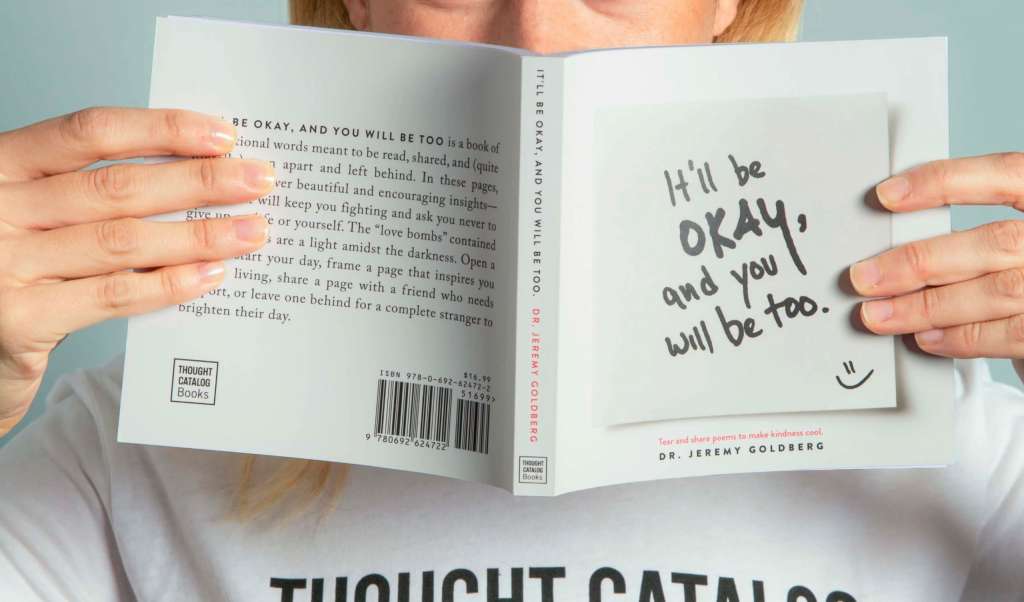 BE OKAY, AND YOU WILL BE TOO is a book of
tional words meant to be read, shared, and (quite
apart and left behind. In these pages,
beautiful and encouraging insights—
will keep you fighting and ask you never to
give up or yourself. The “love bombs” contained
are a light amidst the darkness. Open a
start your day, frame a page that inspires you
living, share a page with a friend who needs
or leave one behind for a complete stranger to
brighten their day.
THOUGHT
CATALOG
Books
$16.99
ISBN 978-0-692-62472-2
51699>
9 780692 624722
IT'LL BE OKAY, AND YOU WILL BE TOO. DR. JEREMY GOLDBERG
THOUGHT
CATALOG
Books
It'll be
OKAY,
and you
will be too.
Tear and share poems to make kindness cool.
DR. JEREMY GOLDBERG
THOUGHT CATALOG